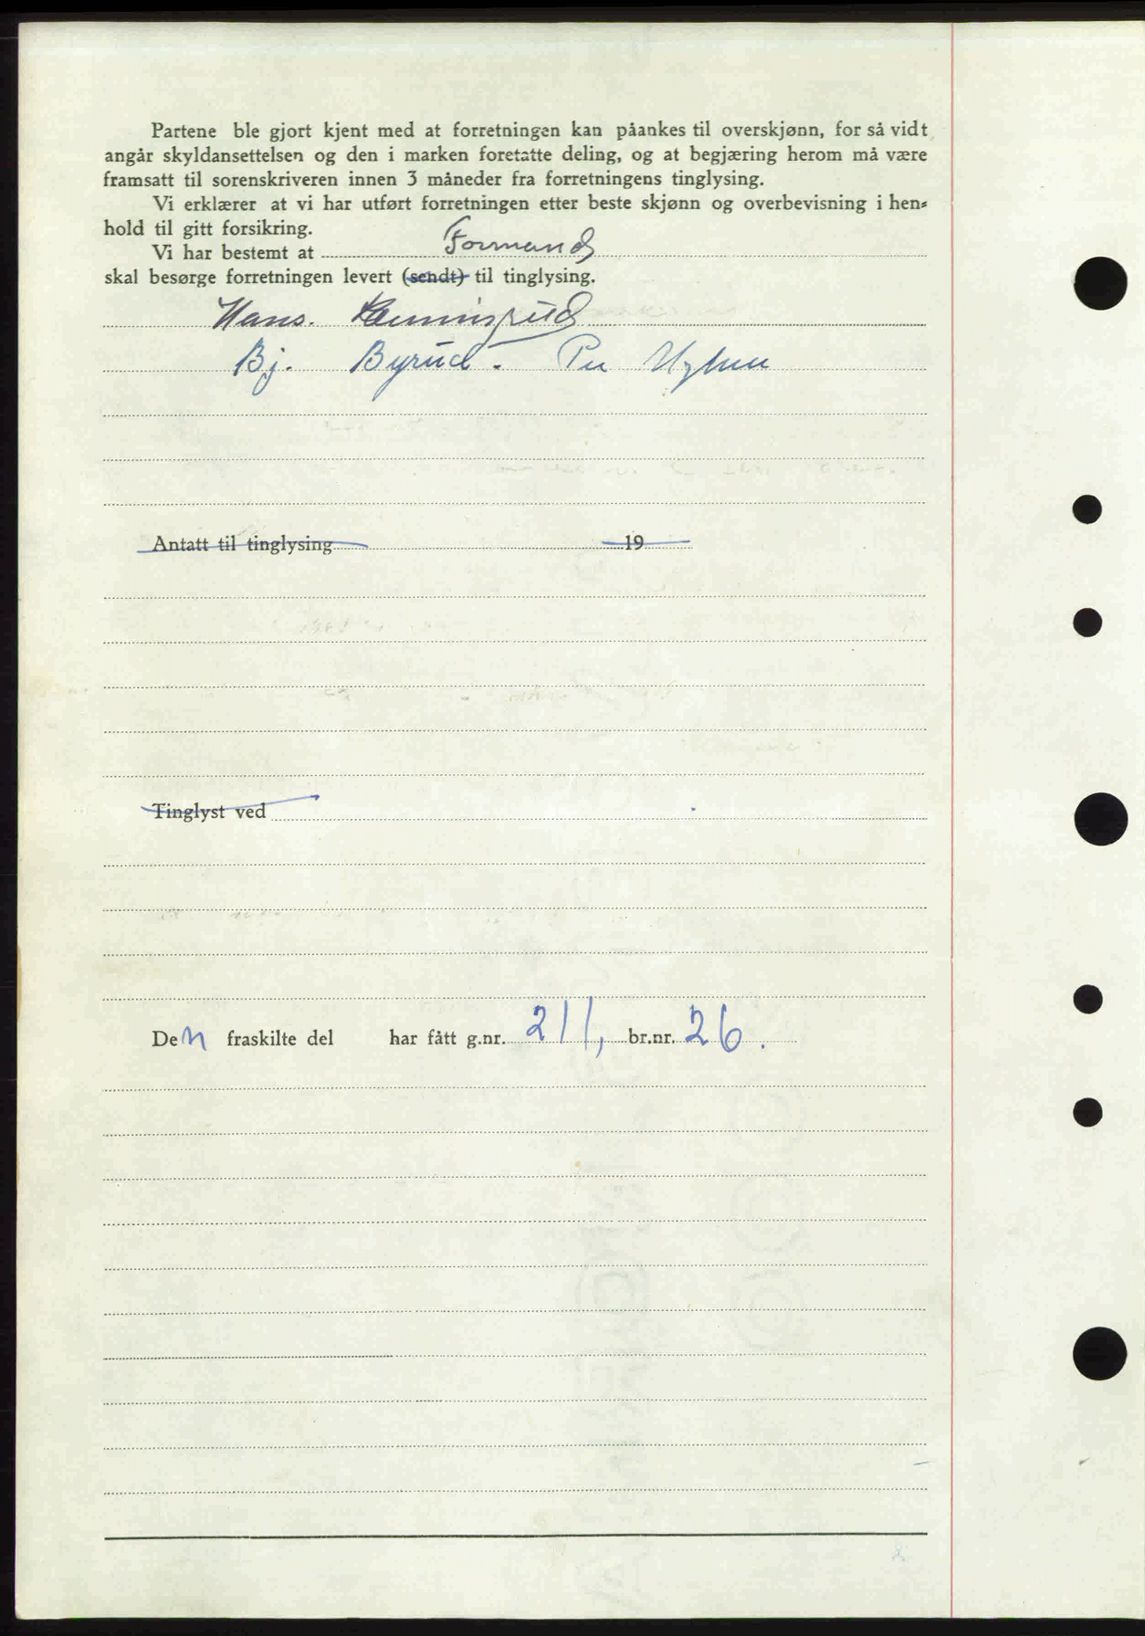 Partene ble gjort kjent med at forretningen kan påankes til overskjønn, for så vidt
angår skyldansettelsen og den i marken foretatte deling, og at begjæring herom må være
framsatt til sorenskriveren innen 3 måneder fra forretningens tinglysing.
Vi erklærer at vi har utført forretningen etter beste skjønn og overbevisning i hen-
hold til gitt forsikring.
Vi har bestemt at Formand
skal besørge forretningen levert (sendt) til tinglysing.
Hans.
Bj. Byrud. Per
Antatt til tinglysing 19
Tinglyst ved
Den fraskilte del har fått g.nr. 211, br.nr. 26.